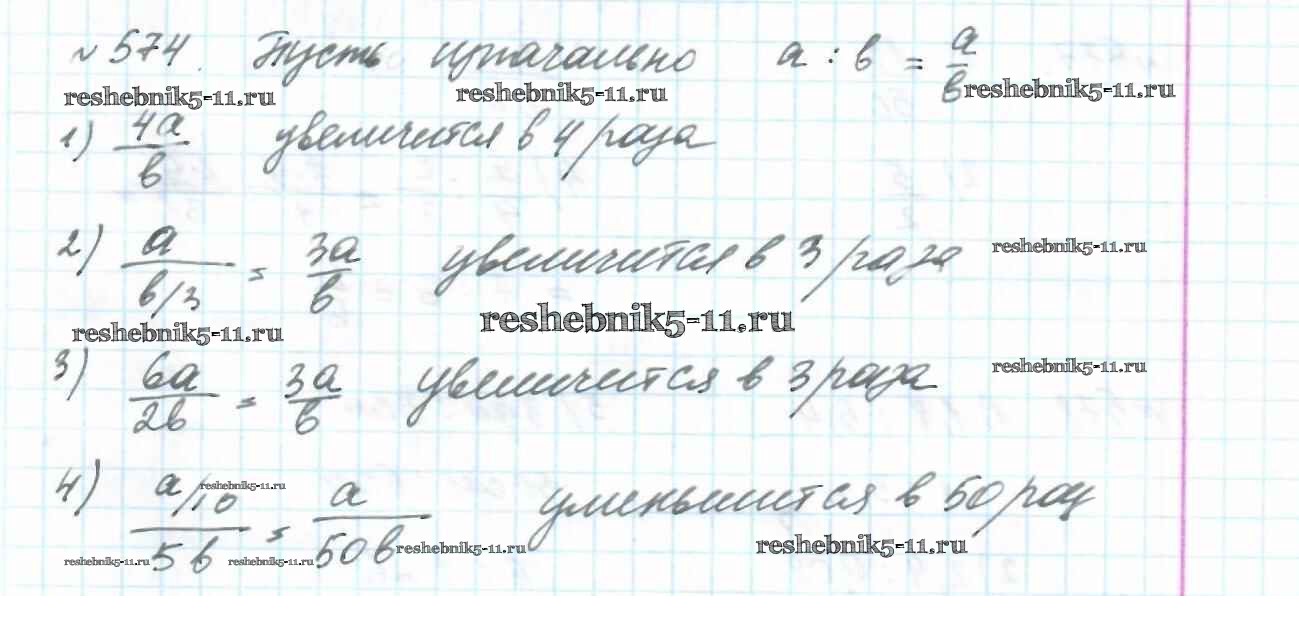 № 574. Пусть изначально a : b = a/b
reshebnik5-11.ru reshebnik5-11.ru reshebnik5-11.ru
1) 4a/b увеличится в 4 раза
2) a/(b/3) = 3a/b увеличится в 3 раза reshebnik5-11.ru
reshebnik5-11.ru reshebnik5-11.ru
3) 6a/2b = 3a/b увеличится в 3 раза reshebnik5-11.ru
4) (a/10)/5b = a/50b уменьшится в 50 раз
reshebnik5-11.ru
reshebnik5-11.ru reshebnik5-11.ru reshebnik5-11.ru reshebnik5-11.ru